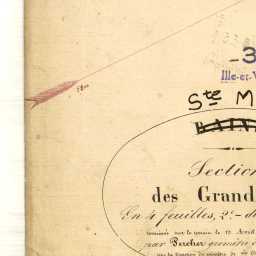 3
Ille-et-V
Ste M
BAIN
Section
des Grand
En 4 feuilles, 2e d
terminé sur le terrain le 12 Avril
par Percher géomètre